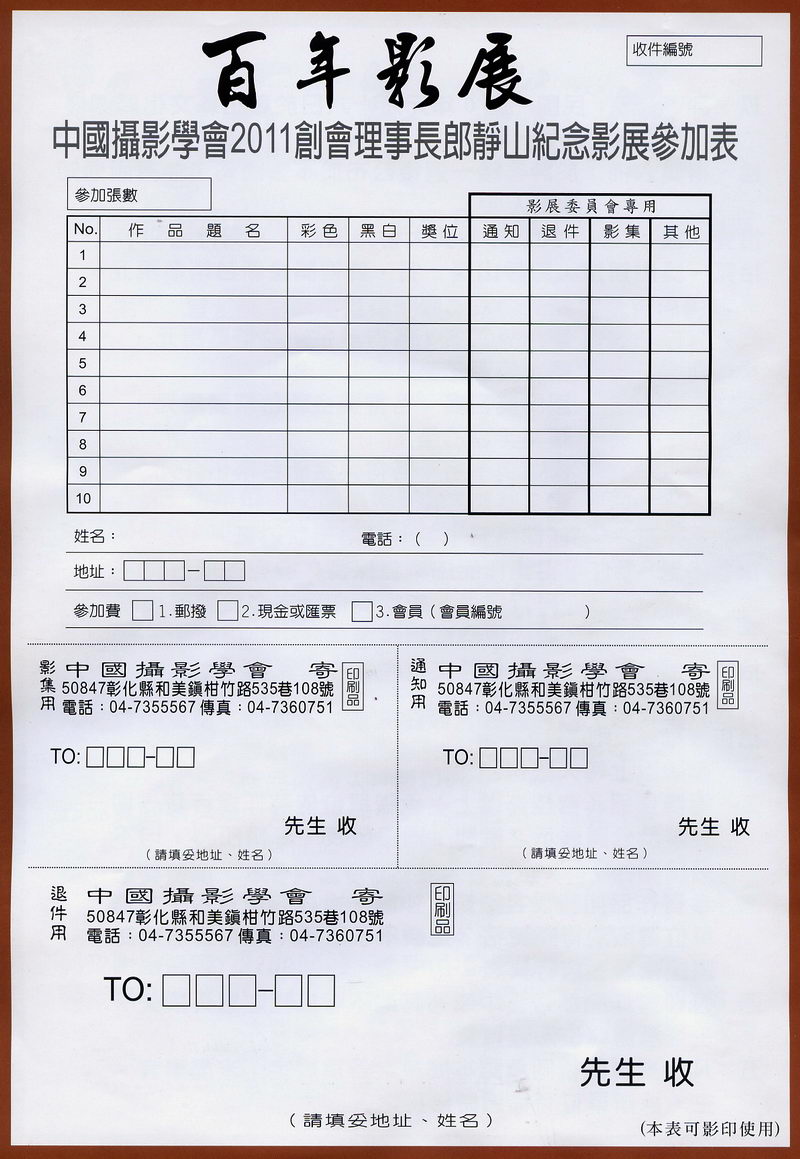 百年影展
收件編號
中國攝影學會2011創會理事長郎靜山紀念影展參加表
參加張數
影展委員會專用
No. 作品題名 彩色 黑白 獎位 通知 退件 影集 其他
1
2
3
4
5
6
7
8
9
10
姓名： 電話：（ ）
地址：□□□－□□
參加費 □1.郵撥 □2.現金或匯票 □3.會員（會員編號 ）
影集用
中國攝影學會 寄
印刷品
50847彰化縣和美鎭柑竹路535巷108號
電話：04-7355567傳真：04-7360751
TO:□□□-□□
先生 收
（請填妥地址、姓名）
通知用
中國攝影學會 寄
印刷品
50847彰化縣和美鎭柑竹路535巷108號
電話：04-7355567傳真：04-7360751
TO:□□□-□□
先生 收
（請填妥地址、姓名）
退件用
中國攝影學會 寄
印刷品
50847彰化縣和美鎭柑竹路535巷108號
電話：04-7355567傳真：04-7360751
TO:□□□-□□
先生 收
（請填妥地址、姓名）
(本表可影印使用)